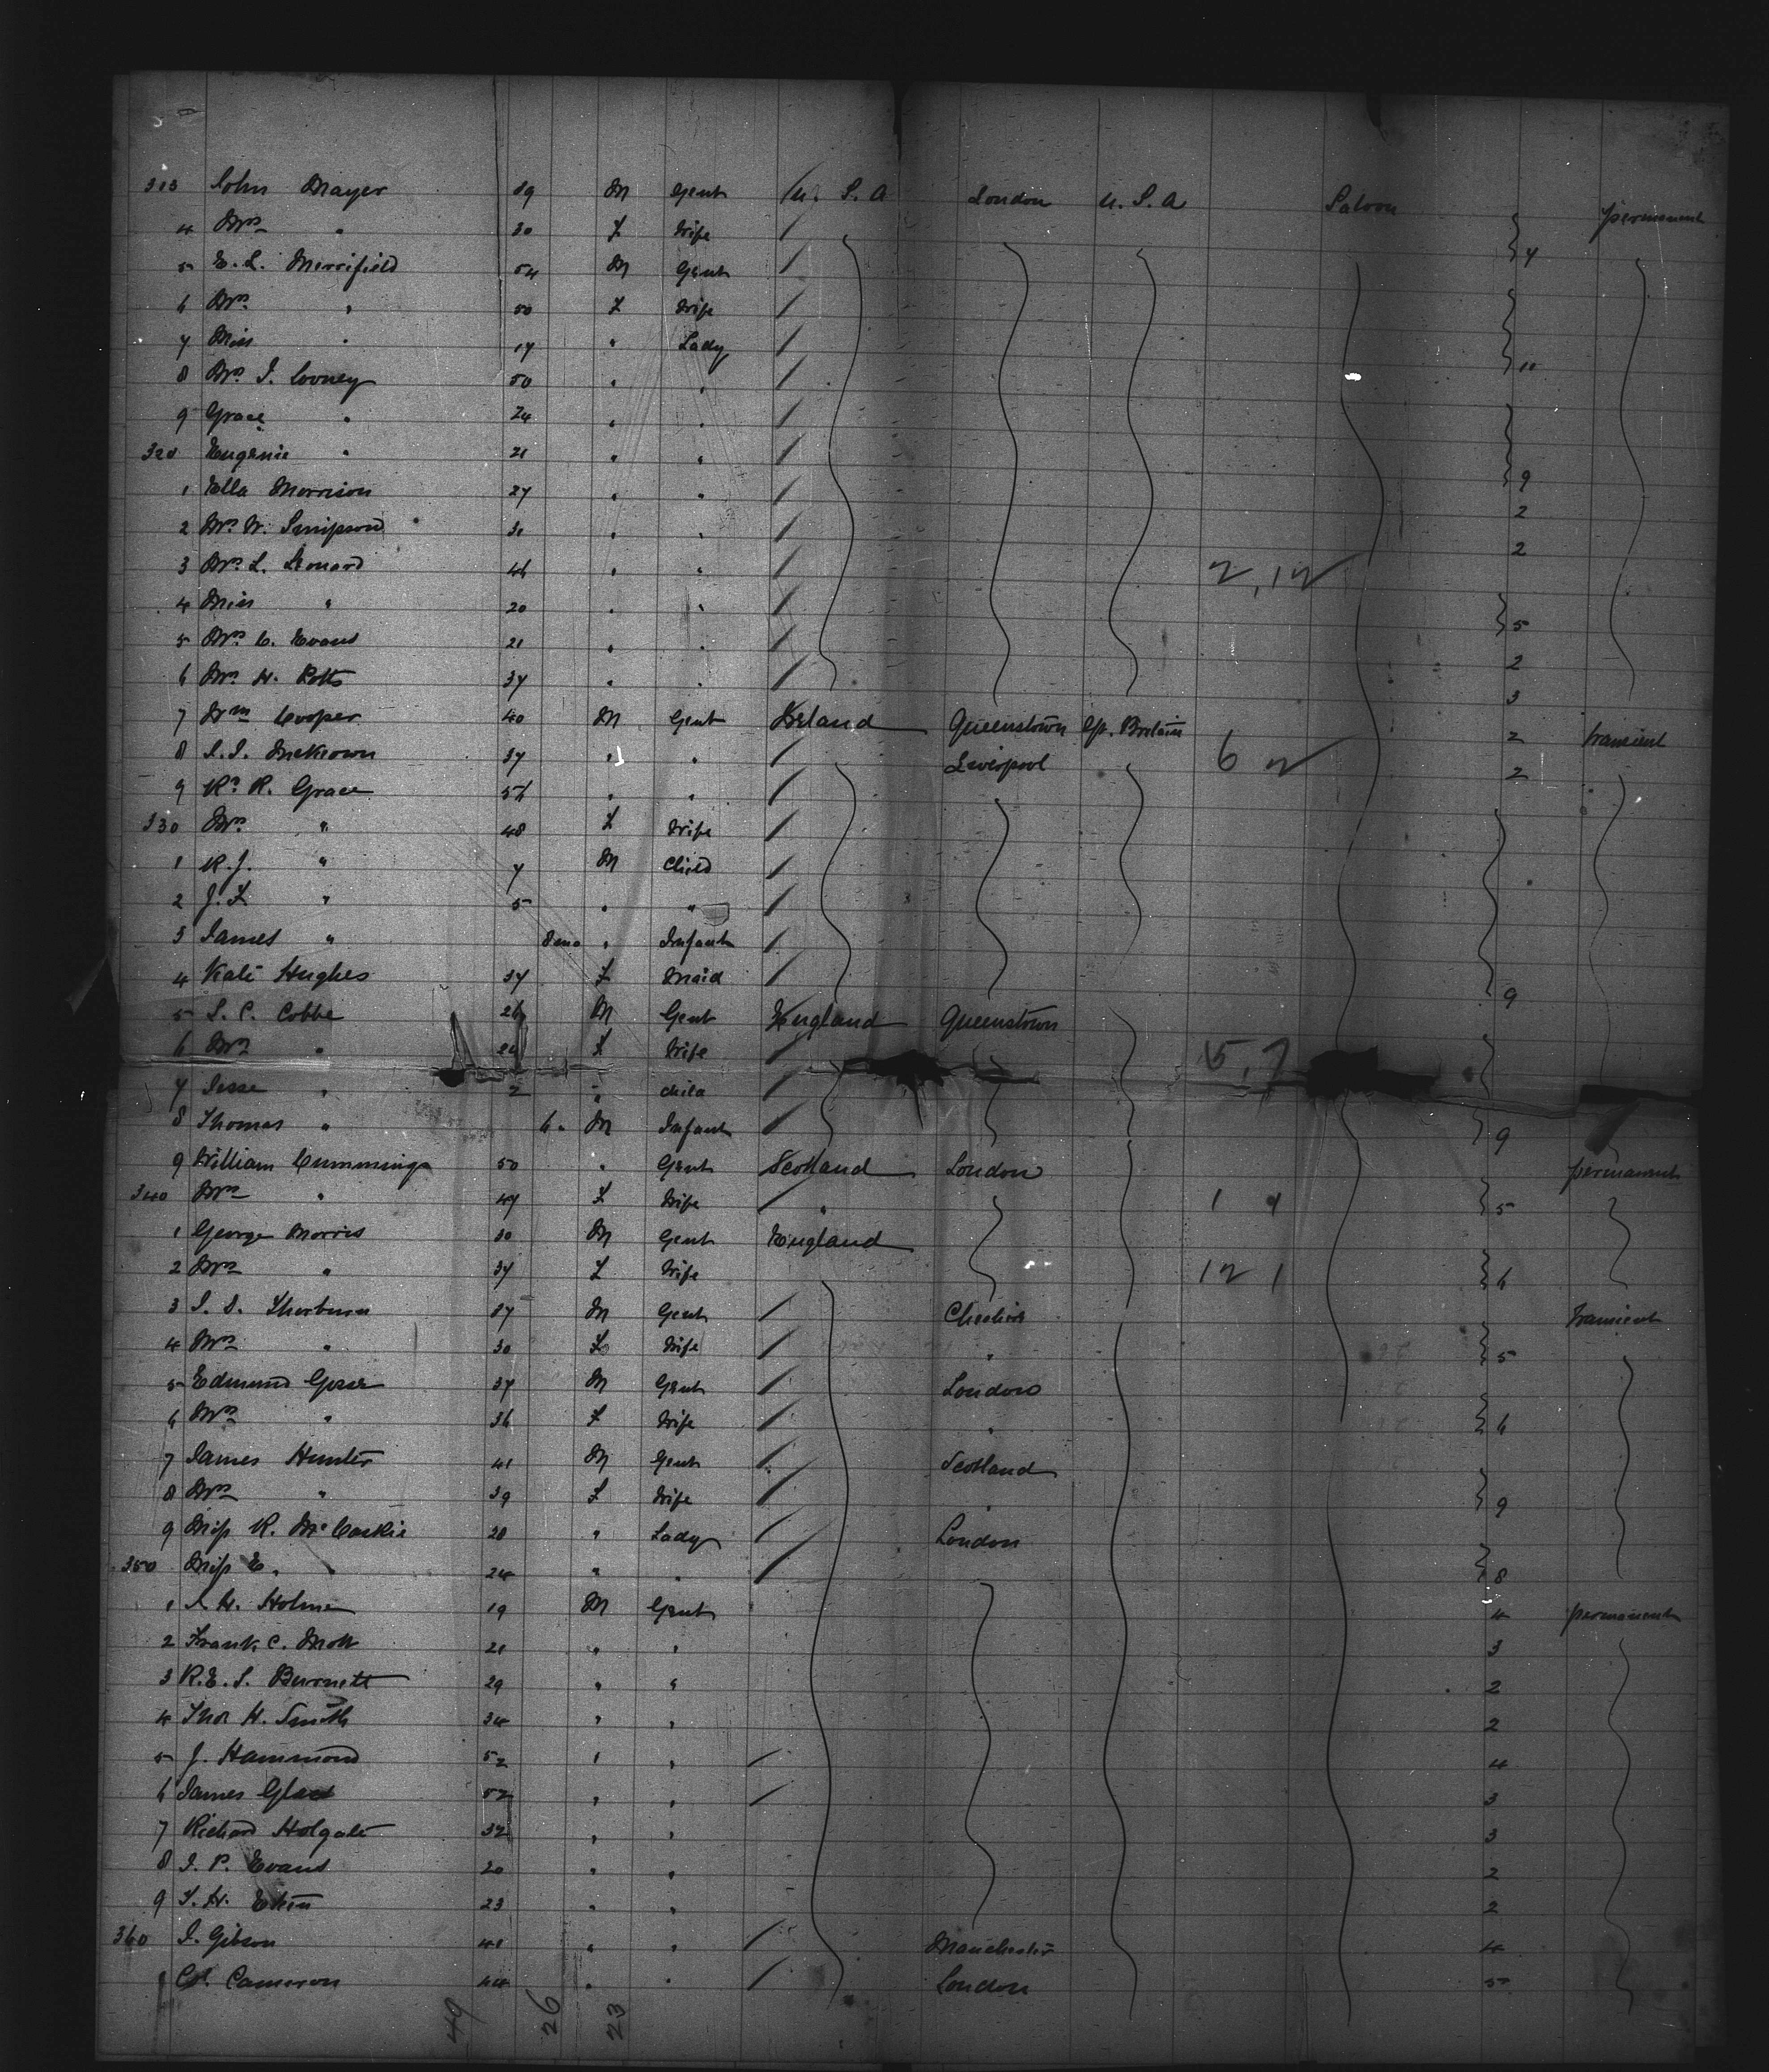 313 John Mayer 39 M Gent U. S. A London U. S. A Saloon permanent
4 Mrs " 30 F Wife 4
5 E. L. Merrifield 54 M Gent
6 Mrs " 50 F Wife
7 Miss " 17 " Lady 10
8 Mrs J. Cooney 50 " "
9 Grace " 24 " "
320 Eugenie " 21 " " 9
1 Ella Morrison 27 " " 2
2 Mrs W. Simpson 31 " " 2
3 Mrs L. Leonard 46 " " 2,12
4 Miss " 20 " " 5
5 Mrs C. Evans 21 " " 2
6 Mrs H. Potts 37 " " 3
7 Wm Cooper 40 M Gent Ireland Queenstown Gt. Britain 2 transient
8 S. J. McKeown 37 " " Liverpool 6 2 2
9 R. Grace 56 " "
330 Mrs " 48 F Wife
1 R. J. " 7 M Child
2 J. F. " 5 " "
3 James " 8 mo " Infant
4 Kate Hughes 37 F Maid 9
5 S. C. Cobbe 26 M Gent England Queenstown
6 Mrs " 24 F Wife 5,7
7 Jesse " 2 " Child
8 Thomas " 6 " M Infant 9
9 William Cummings 50 " Gent Scotland London permanent
340 Mrs " 47 F Wife " 1 1 5
1 George Morris 30 M Gent England
2 Mrs " 37 F Wife 12 1 6
3 J. D. Thorburn 37 M Gent Cheshire transient
4 Mrs " 30 F Wife " 5
5 Edmund Gosse 37 M Gent London
6 Mrs " 36 F Wife " 6
7 James Hunter 41 M Gent Scotland
8 Mrs " 39 F Wife " 9
9 Miss K. McCaskie 28 " Lady London
350 Miss E. " 24 " " 8
1 H. Holme 19 M Gent 4 permanent
2 Frank C. Mott 21 " " 3
3 R. E. S. Burnett 29 " " 2
4 Thos H. Smith 34 " " 2
5 J. Hammond 52 " " 4
6 James Glass 52 " " 3
7 Richard Holgate 32 " " 3
8 J. P. Evans 20 " " 2
9 23 " " 2
360 J. Gibson 41 " " Manchester 4
1 Col. Cameron 44 " " London 5
49 26 23